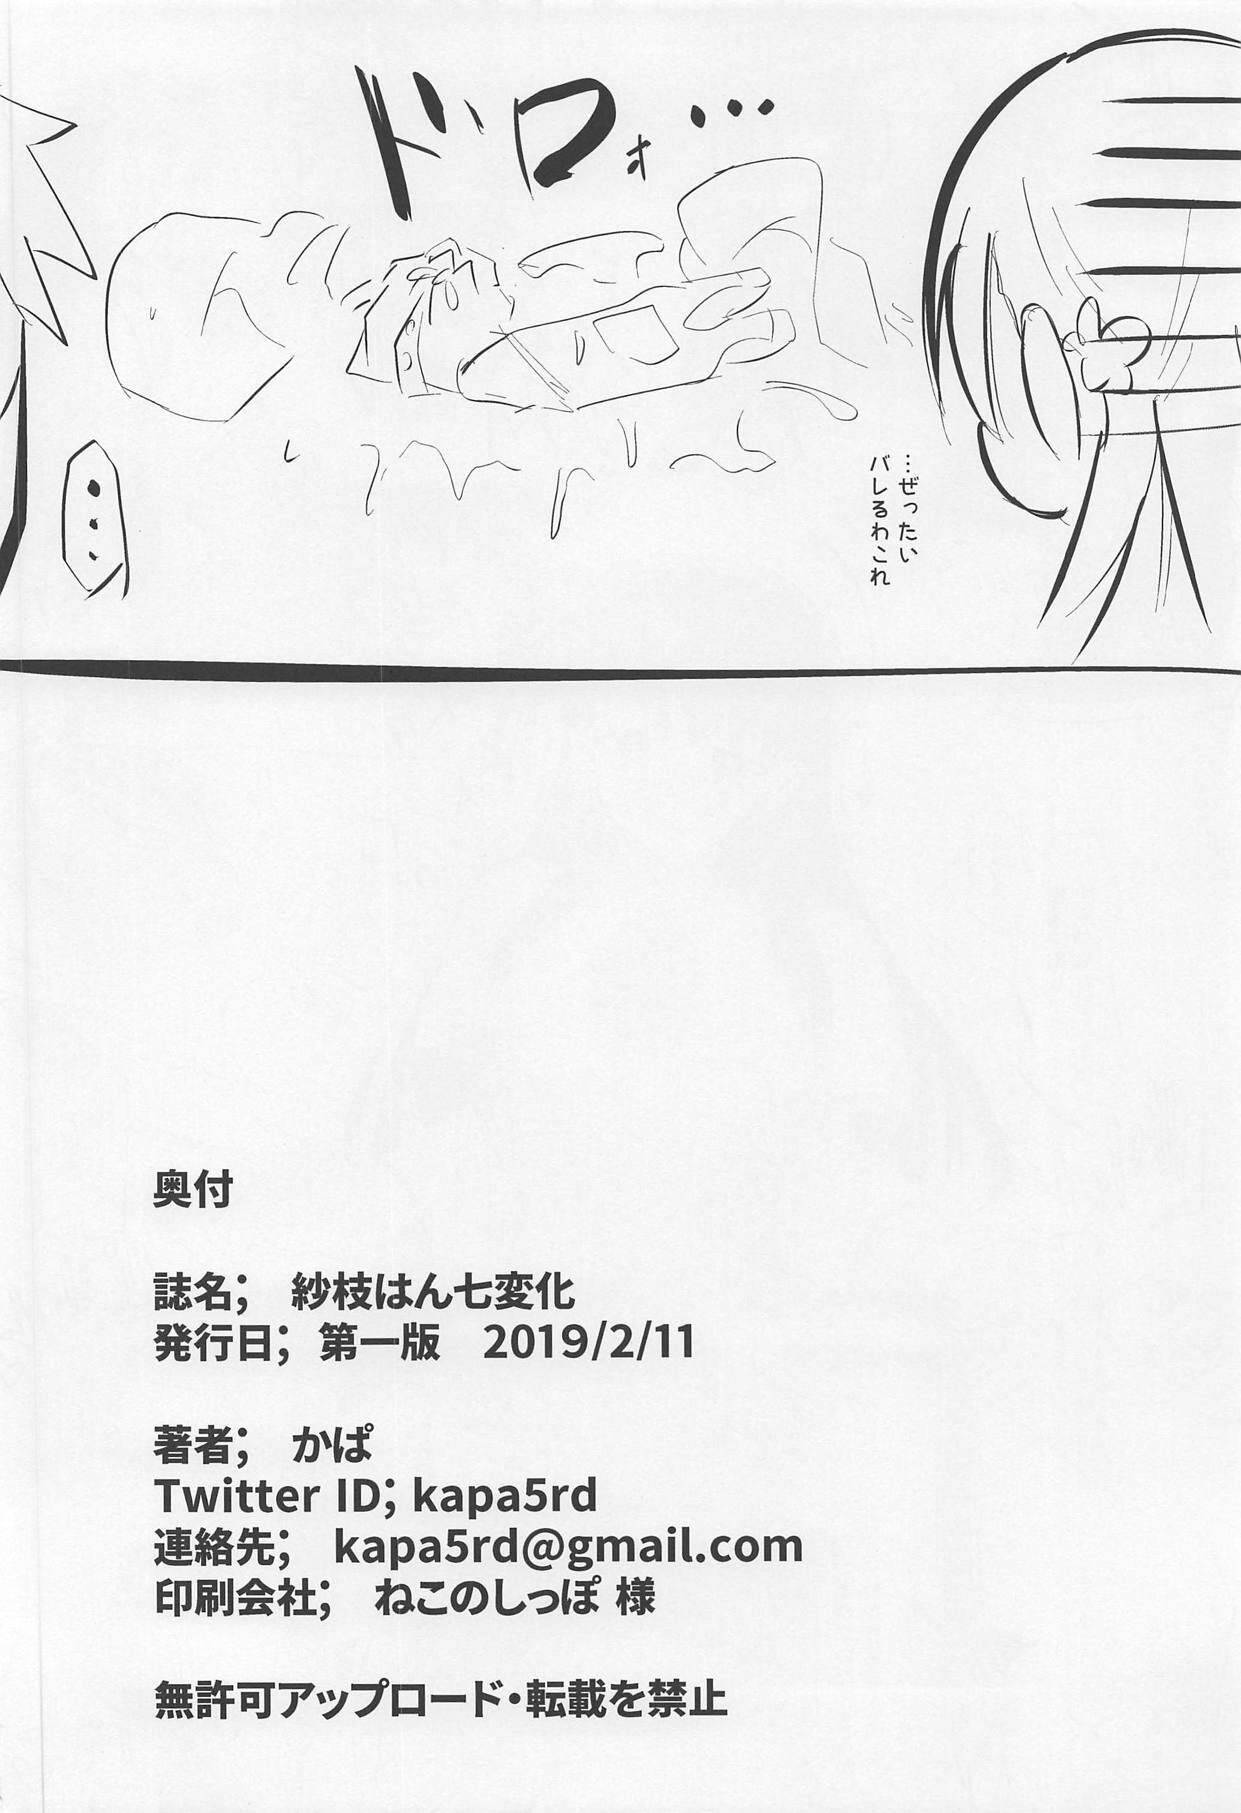 ドロォ・・・
…ぜったい
バレるわこれ
・・・
奥付
誌名；　紗枝はん七変化
発行日；　第一版　2019/2/11
著者；　かぱ
Twitter ID; kapa5rd
連絡先；　kapa5rd@gmail.com
印刷会社；　ねこのしっぽ 様
無許可アップロード・転載を禁止